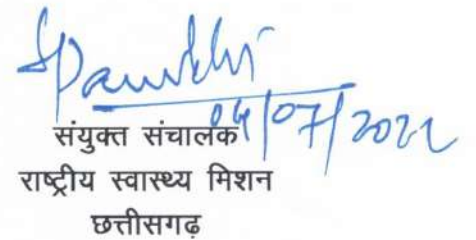 04/07/2022
संयुक्त संचालक
राष्ट्रीय स्वास्थ्य मिशन
छत्तीसगढ़